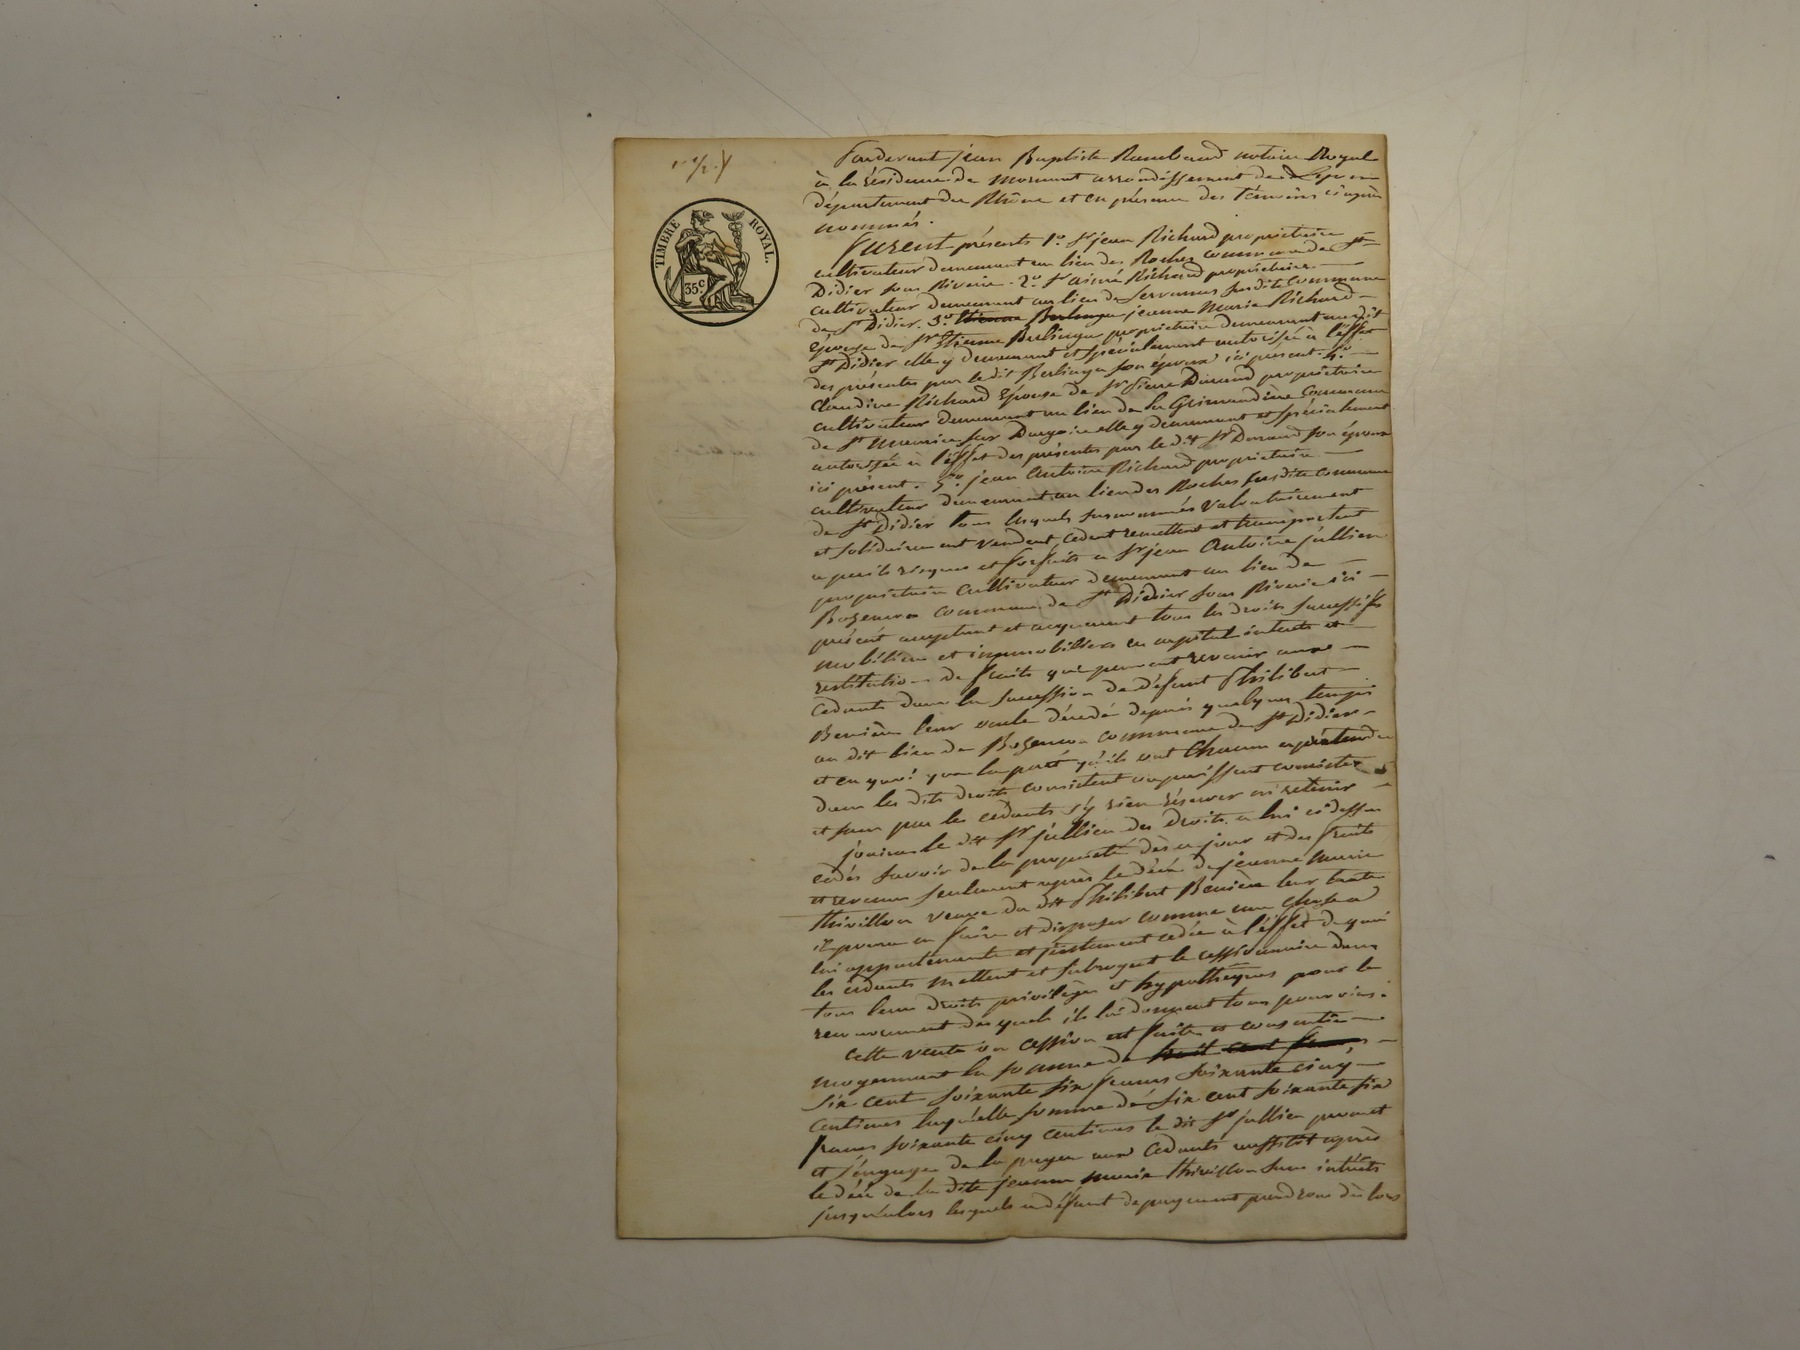 TIMBRE ROYAL.
35c
Pardevant jean Baptiste Rambaud notaire Royal
à la résidence de mornant arrondissement de Lyon
département du Rhône et en présence des témoins cy après
nommés.
Furent présents 1o. Sr jean Richard propriétaire
cultivateur demeurant au lieu des Roches commune de St
Didier sous Riverie. 2o. Sr aimé Richard propriétaire
cultivateur demeurant au lieu de susdite commune
de St Didier. 3o. Etienne Berlinge jeanne Marie Richard
Epouse de Sr Etienne Berlinge propriétaire demeurant au dit
St Didier elle y demeurant et spécialement autorisée à l'effet
des présentes par le dit Berlinge son époux ici présent. 4o.
Claudine Richard Epouse de Sr Pierre Durand propriétaire
cultivateur demeurant au lieu de la Grimaudière commune
de St Maurice sur Dargoire elle y demeurant et spécialement
autorisée à l'effet des présentes par le dit Sr Durand son époux
ici présent. 5o. jean Antoine Richard propriétaire
cultivateur demeurant au lieu des Roches susdite commune
de St Didier tous lesquels susnommés Volontairement
et solidairement vendent cedent remettent et transportent
a perils risques et forfaits a Sr jean Antoine jullien
propriétaire cultivateur demeurant au lieu de
commune de St Didier sous Riverie ici
présent acceptant et acquerant tous les droits successifs
mobiliers et immobiliers en capital intérêts et
restitution de fruits qui peuvent revenir aux
cedants dans la succession de défunt Philibert
leur oncle décédé depuis quelques temps
au dit lieu de commune de St Didier
et en quoi que la part qu'ils ont chacun a prétendre
dans les dits droits consistent ou puissent consister
et sans par les cédants s'y rien réserver ni retenir
jouira le dit Sr jullien des droits a lui cidessus
cédés savoir de la propriété dès ce jour et des fruits
et revenus seulement après le décé de jeanne Marie
thivillon veuve du dit Philibert leur tante
il pourra en faire et disposer comme une chose a
lui appartenante et justement cédée à l'effet de quoi
les cédants mettent et subrogent le cessionnaire dans
tous leurs droits privilèges et hypothèques pour le
recouvrement desquels ils lui donnent tous pouvoirs.
Cette vente ou cession est faite et consentie
moyennant la somme de huit cent francs
six cent soixante six francs soixante cinq
centimes laquelle somme de six cent soixante six
francs soixante cinq centimes le dit Sr jullien promet
et s'engage de la payer aux cédants aussitôt après
le décé de la dite jeanne marie thivillon sans intérêts
jusqu'alors lesquels a défaut de payement prendront dès lors